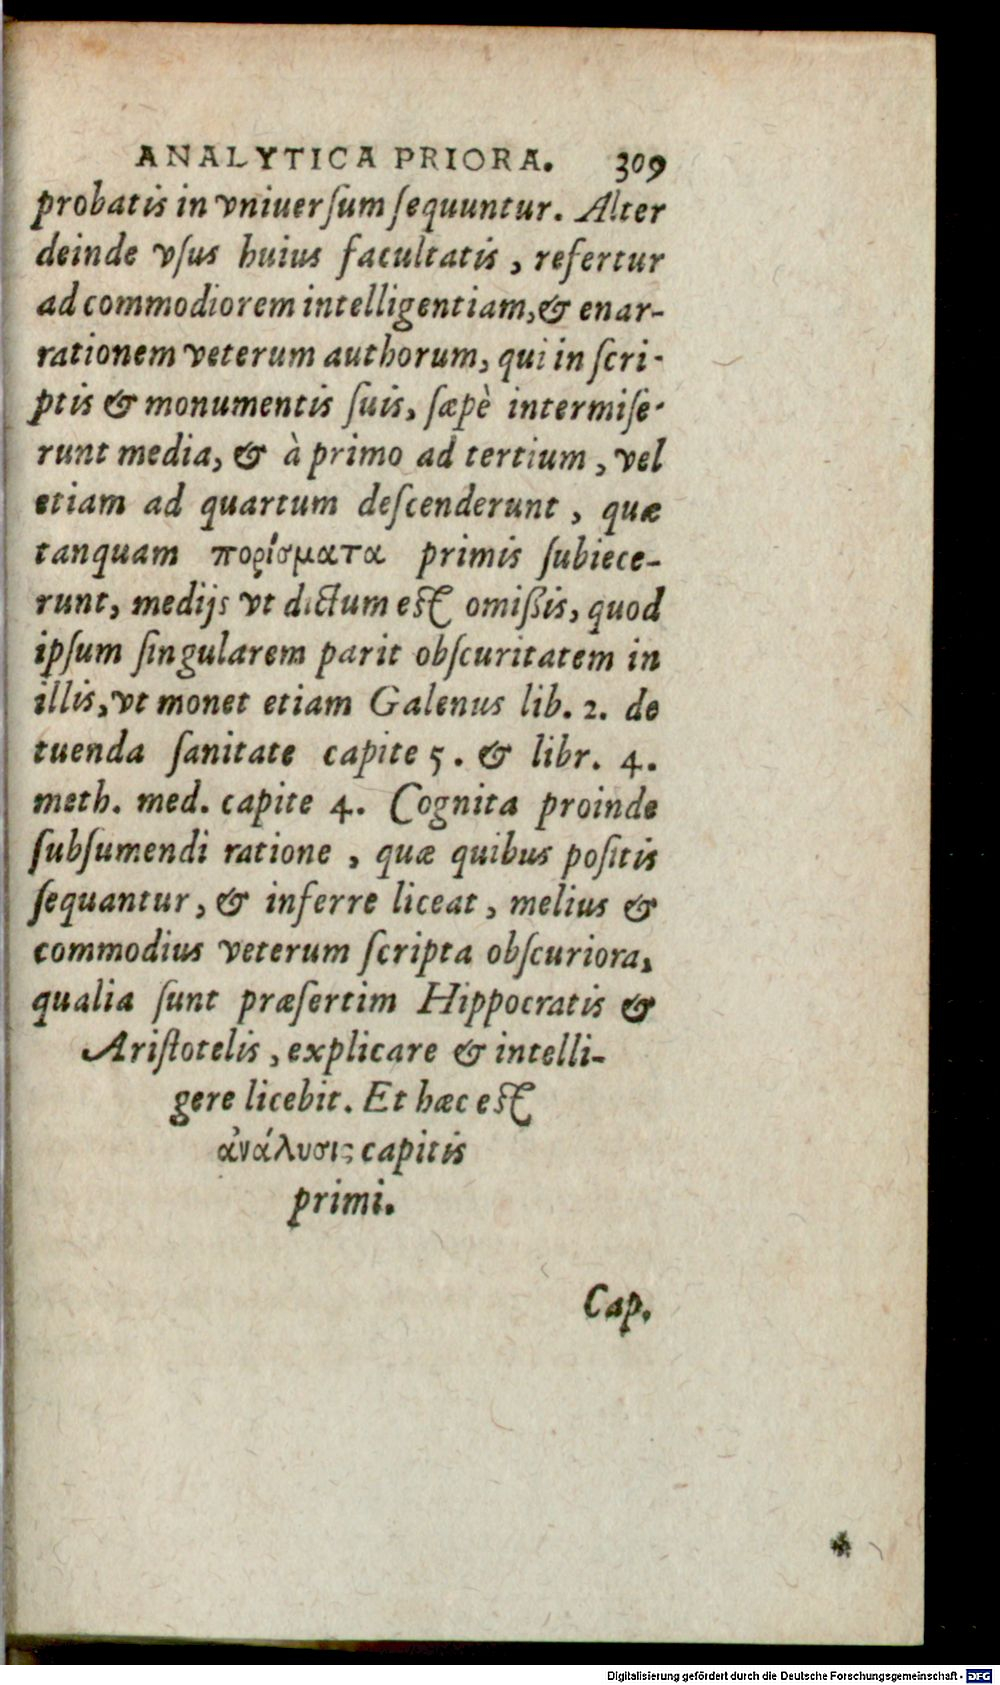 ANALYTICA PRIORA. 309
probatis in vniuersum sequuntur. Alter
deinde vsus huius facultatis, refertur
ad commodiorem intelligentiam, & enar-
rationem veterum authorum, qui in scri-
ptis & monumentis suis, sæpè intermise-
runt media, & à primo ad tertium, vel
etiam ad quartum descenderunt, quæ
tanquam πορίσματα primis subiece-
runt, medijs vt dictum est omißis, quod
ipsum singularem parit obscuritatem in
illis, vt monet etiam Galenus lib. 2. de
tuenda sanitate capite 5. & libr. 4.
meth. med. capite 4. Cognita proinde
subsumendi ratione, quæ quibus positis
sequantur, & inferre liceat, melius &
commodius veterum scripta obscuriora,
qualia sunt præsertim Hippocratis &
Aristotelis, explicare & intelli-
gere licebit. Et hæc est
ἀνάλυσις capitis
primi.
Cap.
Digitalisierung gefördert durch die Deutsche Forschungsgemeinschaft - DFG